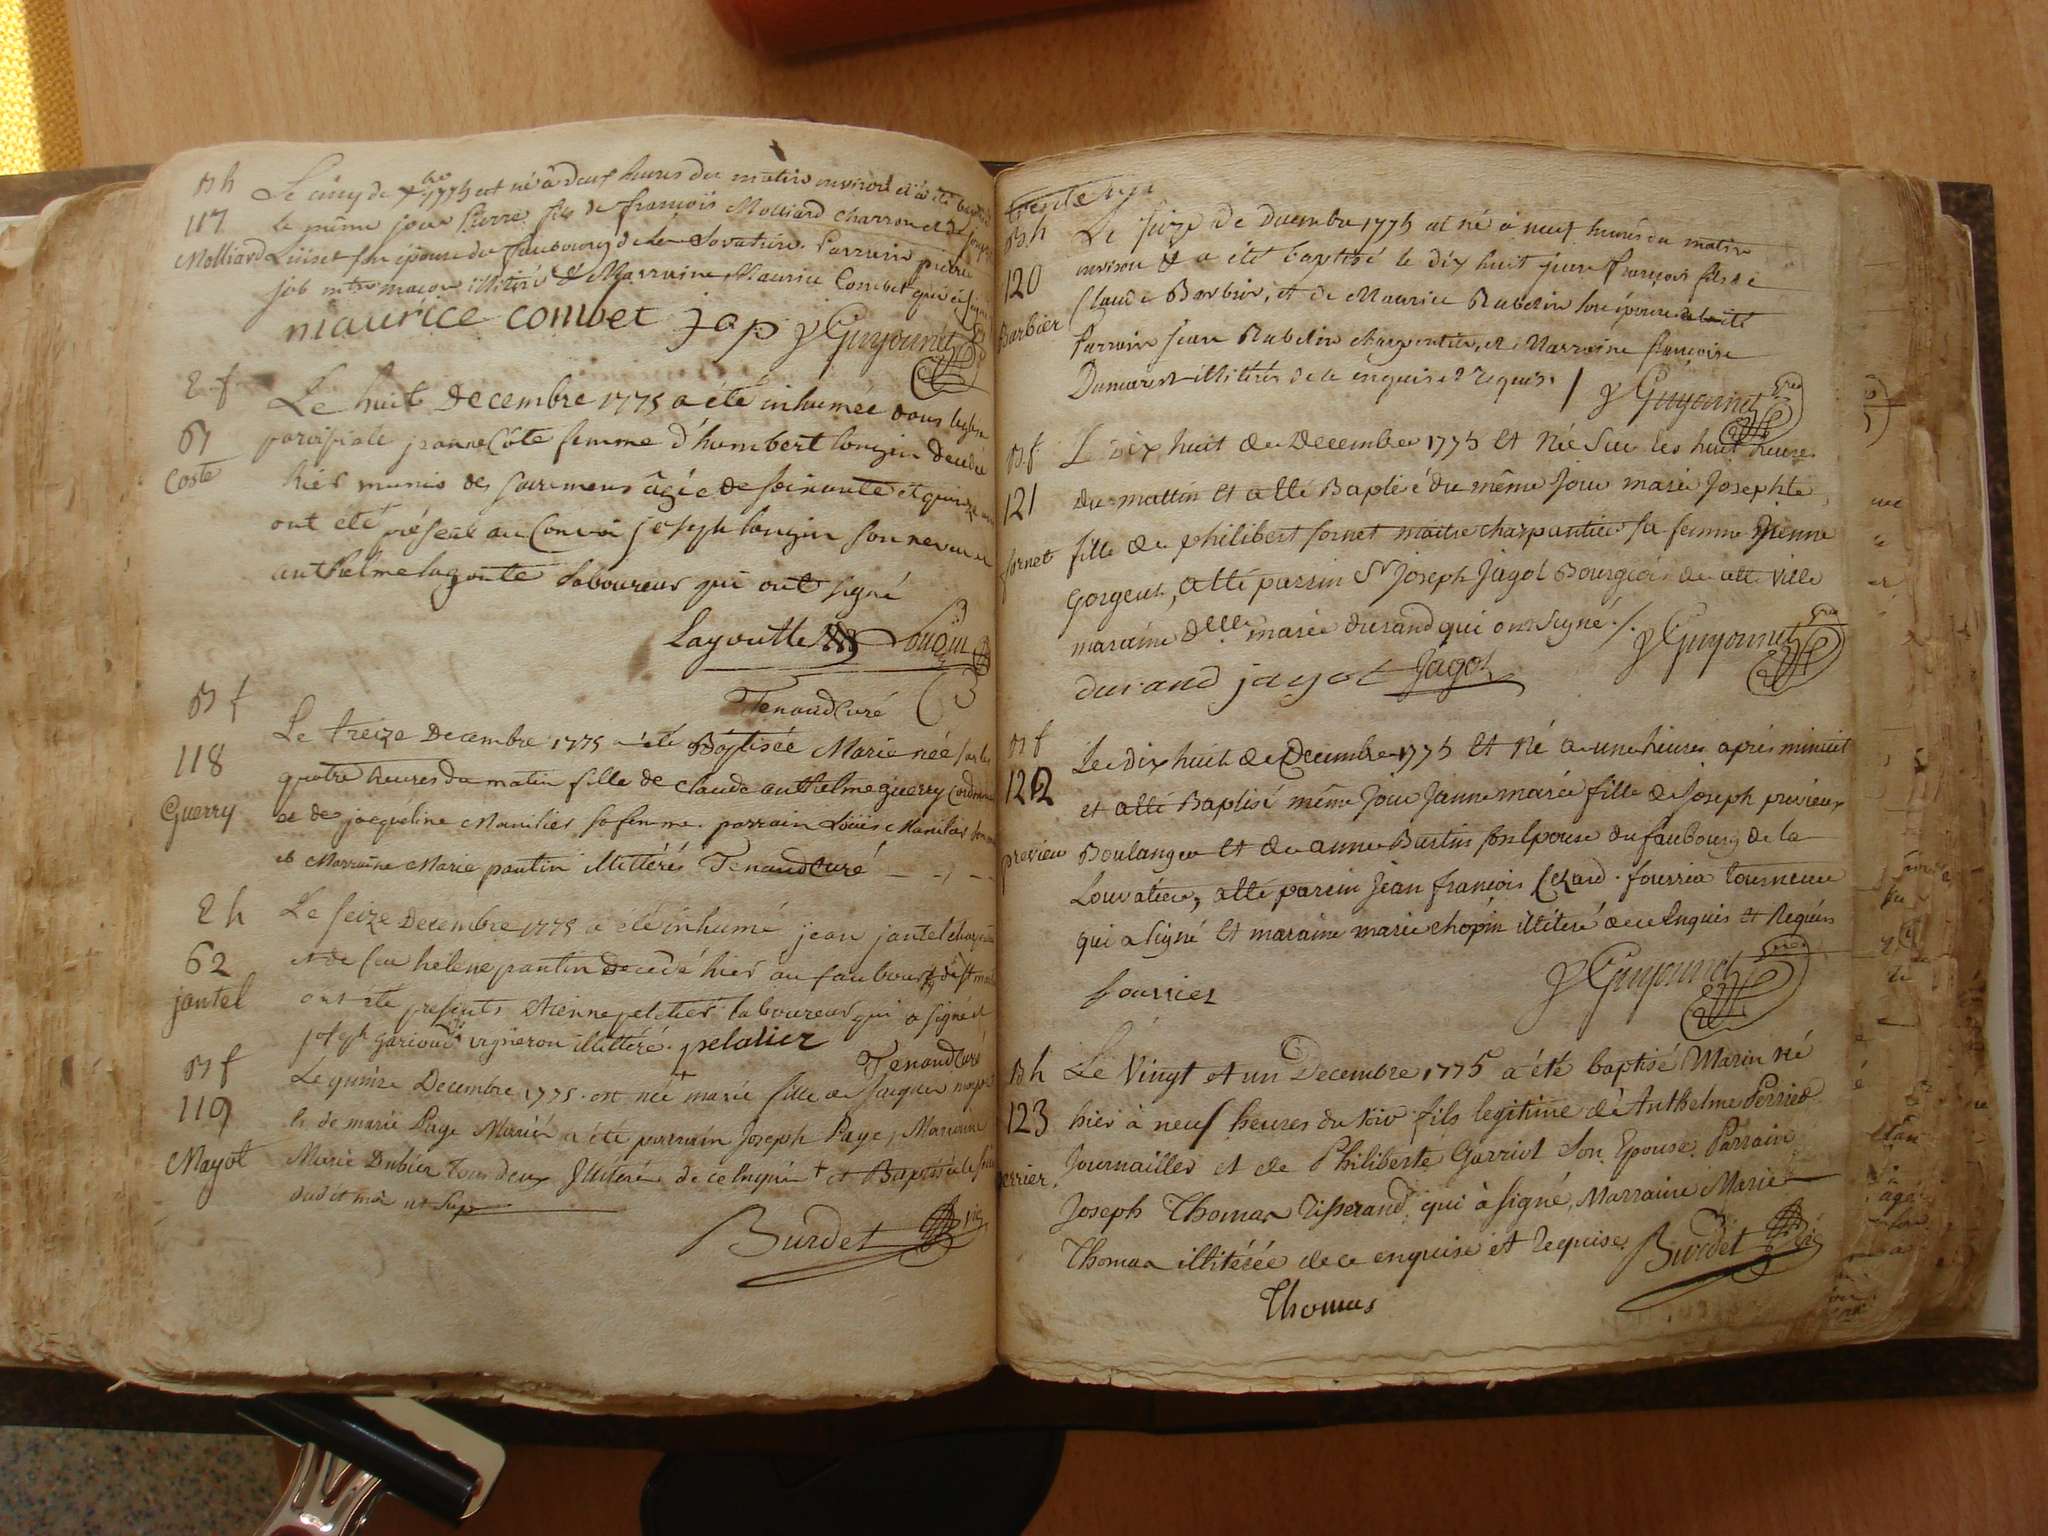 B h
117
Molliard
Le cinq de Xbre 1775 est né à deux heures du matin environ et a été baptisé
le même jour Pierre fils de françois Molliard charron et de
Luiset son épouse du faubourg de la Lovatière. Parrain pierre
job mtre maçon illitéré et Marraine Maurice Combet qui a signé
maurice combet jop J Guyonnet
E f
61
Coste
Le huit Decembre 1775 a été inhumée dans leglise
paroissiale jeanne Côte femme d'humbert longin decedée
hier munie des sacremens âgée de soixante et quinze ans
ont été présent au Convoi joseph longin son neveu et
anthelme lagoutte laboureur qui ont signé
Lagoutte Lougin
Tenaud Curé
B f
118
Guerry
Le treize Decembre 1775 a été Baptisée Marie née sur les
quatre heures du matin fille de Claude anthelme guerry Cordonnier
et de jacqueline Manilier sa femme. parrain Loüis Manilier
et Marraine Marie pantin illettérés Tenaud Curé
E h
62
jantel
Le seize Decembre 1775 a été inhumé jean jantel
et de feu helene pantin Decedé hier au faubourg de st
ont été presents Etienne peletier laboureur qui a signé et
joseph garioud vigneron illettéré. peletier
Tenaud Curé
B f
119
Mayot
Le quinze Decembre 1775. est née marie fille de Jacques mayot
& de marie Page Mariés a été parrain Joseph Page, Marraine
Marie Dubier tous deux Illiterés de ce enquis + et Baptisée le
dud it mois ut Sup
Burdet vic
B h
120
Barbier
Le seize de Decembre 1775 est né à neuf heures du matin
environ et a été baptisé le dix huit jean françois fils de
Claude Barbier, et de Maurice Rubelin son épouse
Parrain jean Rubelin charpentier, et Marraine françoise
Dumarest illitérés de ce enquis et requis. / J Guyonnet
B f
121
fornet
Le Dix huit de Decembre 1775 Et Née Sur les huit heures
du mattin Et atté Baptisé du même Jour marie Josephte
fille de philibert fornet maitre charpantier sa femme Etienne
Gorgeut, atté parrin Sr Joseph Jagot Bourgeois de cette ville
maraine Delle marie durand qui ont signé /. J Guyonnet
durand jagot Jagot
B f
122
previeu
Le dix huit de Decembre 1775 Et Né a une heures après minuit
et atté Baptisé même Jour Janne marie fille de Joseph previeux
Boulanger Et de anne Bustin son Epouse du faubourg de la
Louvatiere, atté parrin Jean françois fourrier tourneur
qui a signé Et maraine marie chopin illiteré de ce Enquis Et Requis
fourrier J Guyonnet
B h
123
perrier
Le Vingt et un Decembre 1775 a été baptisé Marin né
hier à neuf heures du soir fils legitime de Anthelme Perrier
Journaillier et de Philiberte Garriot Son Epouse. Parrain
Joseph Thomas Tisserand, qui à signé, Marraine Marie
Thomas illitérée de ce enquise et requise Burdet Vic
Thomas